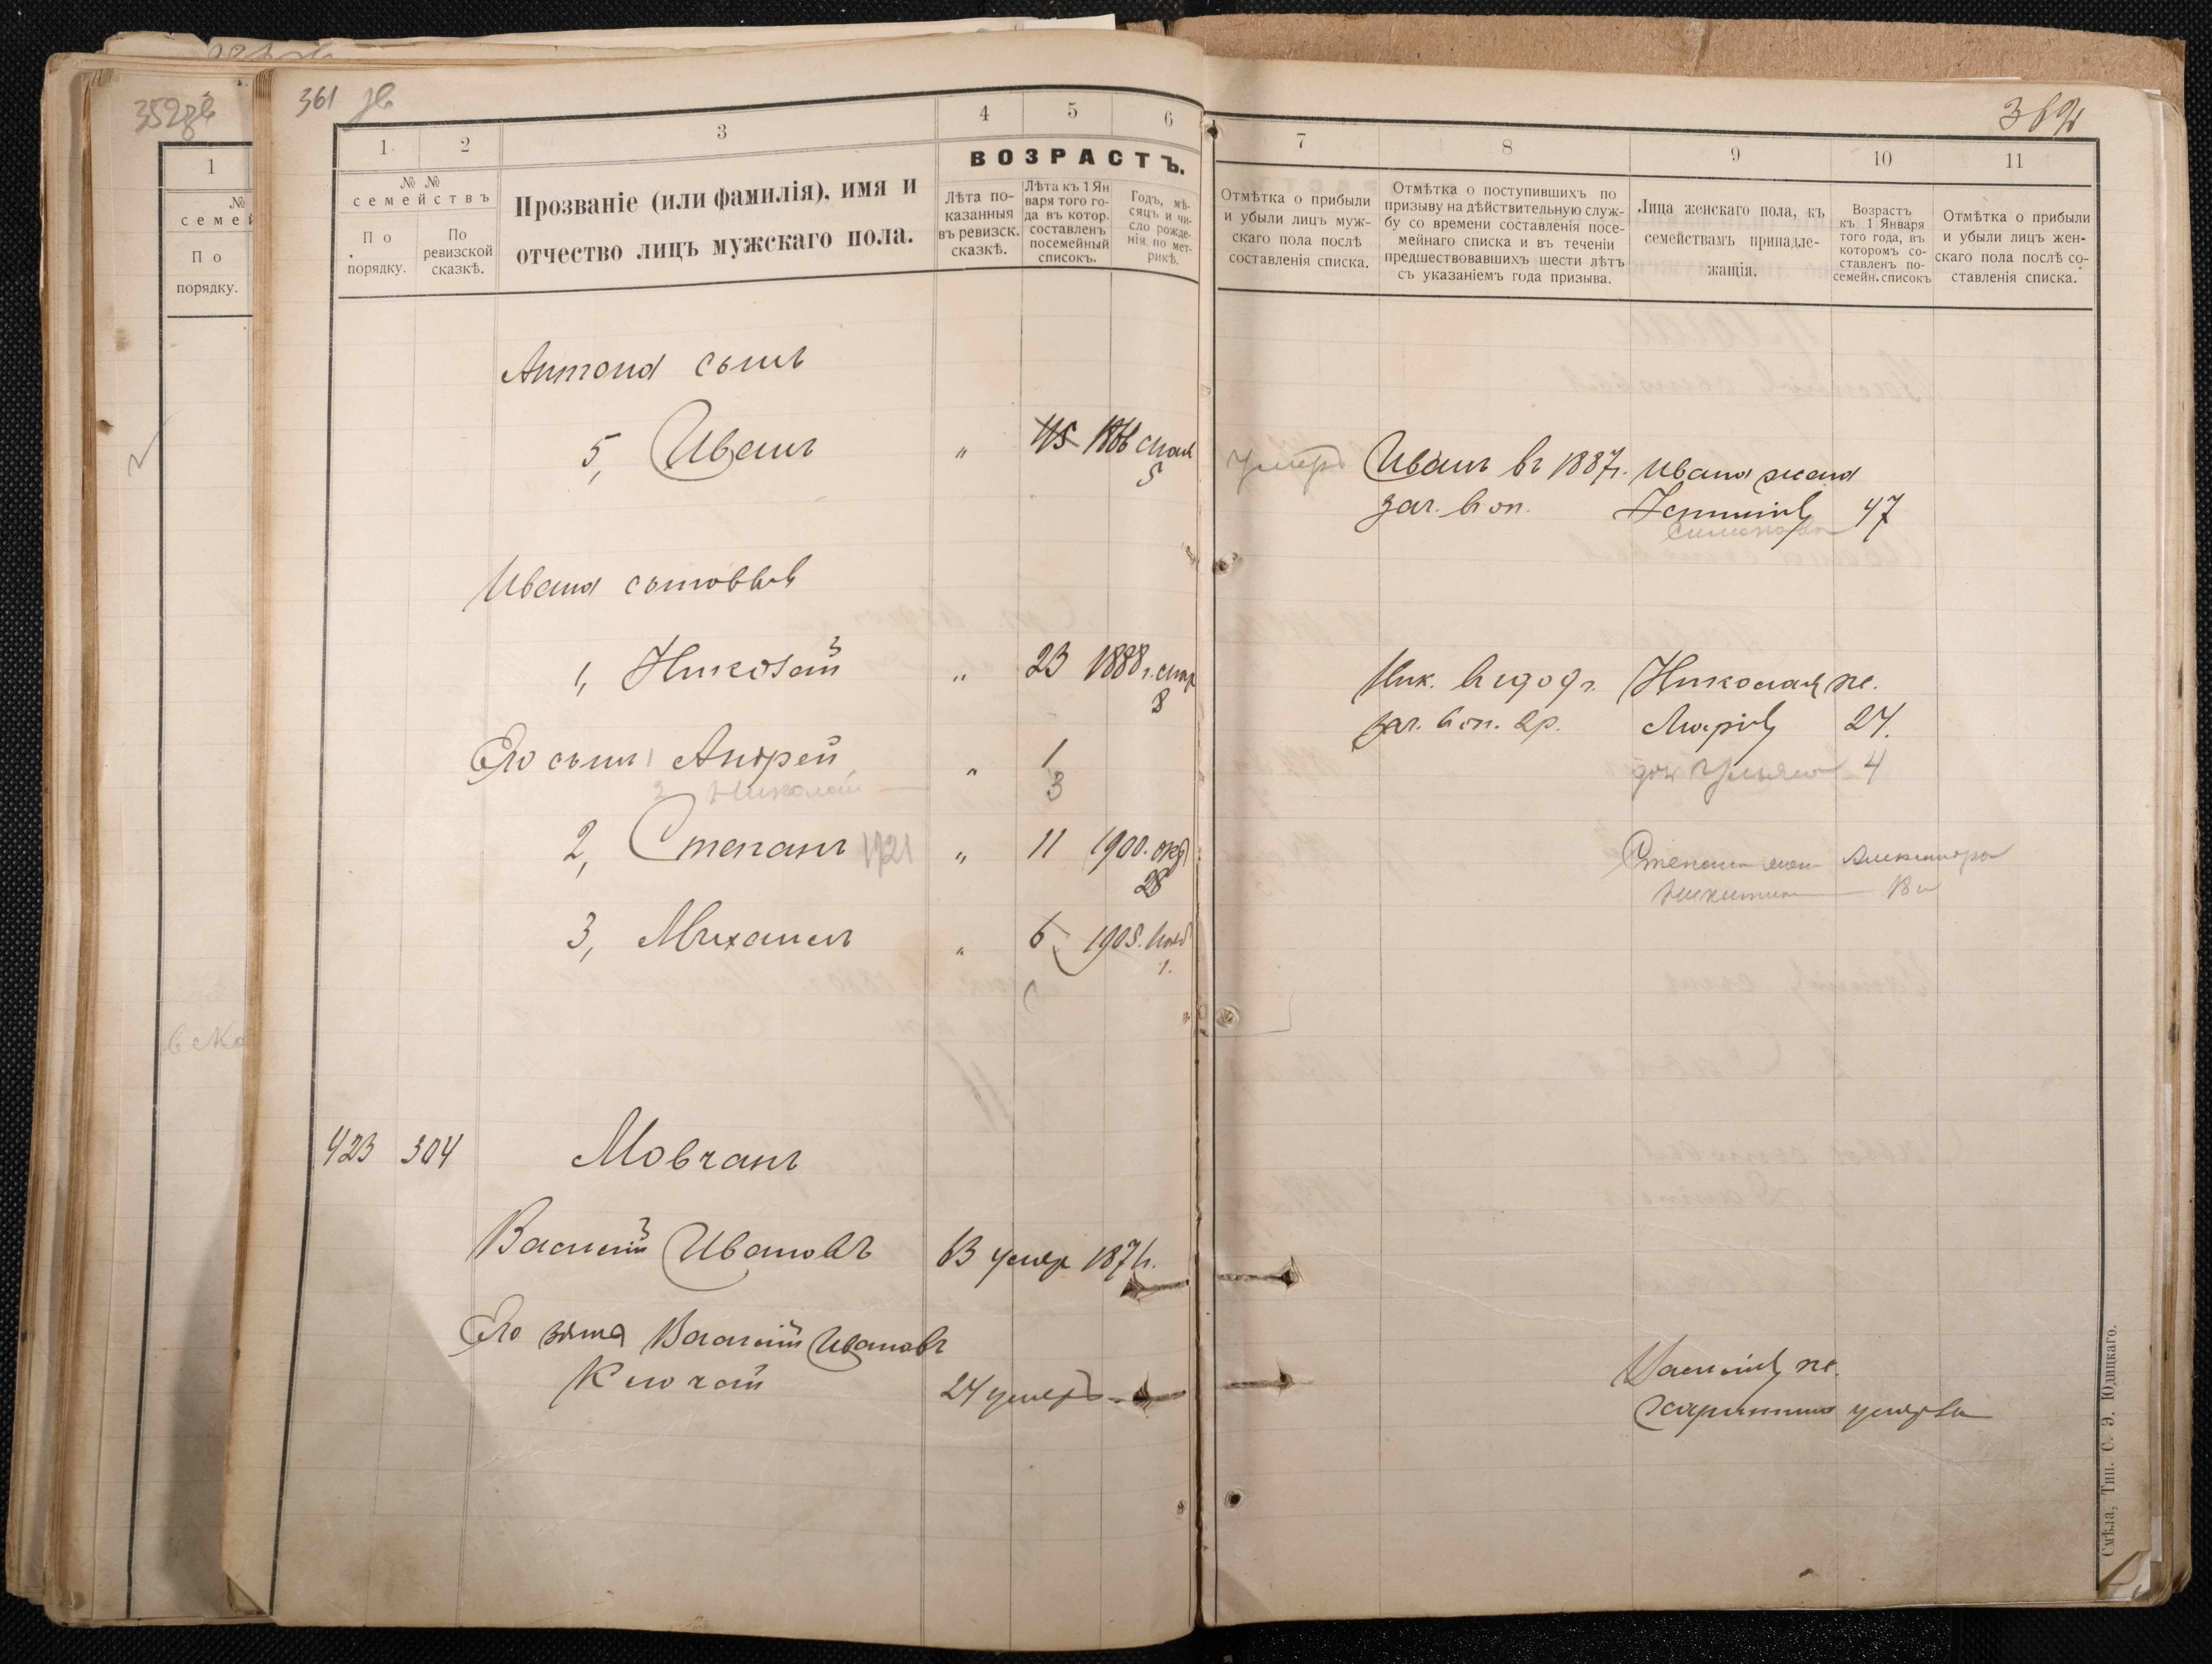 361 зв
1
2
3
4
5
6
№ №
семействъ
По
порядку.
По
ревизской
сказкѣ.
Прозваніе (или фамилія), имя и
отчество лицъ мужскаго пола.
ВОЗРАСТЪ.
Лѣта по-
казанныя
въ ревизск.
сказкѣ.
Лѣта къ 1 Ян
варя того го-
да въ котор.
составленъ
посемейный
списокъ.
Годъ, мѣ-
сяцъ и чи-
сло рожде-
нія по мет-
рикѣ.
Антона сынъ
5, Иванъ " 45 1866
5
Ивана сыновья
1, Николай " 23 1888 г.
8
Его сынъ 1 Андрей " 1
2 Николай 3
2, Степанъ 1921 " 11 1900. окт
28
3, Михаилъ " 6 1905. нояб
1.
423 304 Мовчанъ
Василій Ивановъ 63 умер 187
Его зятя Василій Ивановъ
Клочай 24 умеръ
352 зв
1
№
семей
По
порядку.
7
8
9
10
11
Отмѣтка о прибыли
и убыли лицъ муж-
скаго пола послѣ
составленія списка.
Отмѣтка о поступившихъ по
призыву на дѣйствительную служ-
бу со времени составленія посе-
мейнаго списка и въ теченіи
предшествовавшихъ шести лѣтъ
съ указаніемъ года призыва.
Лица женскаго пола, къ
семействамъ принадле-
жащія.
Возрастъ
къ 1 Января
того года, въ
которомъ со-
ставленъ по-
семейн. списокъ
Отмѣтка о прибыли
и убыли лицъ жен-
скаго пола послѣ со-
ставленія списка.
умеръ Иванъ въ 1887 г. Ивана жена
зач. в оп. 47
Ник. в 1909 г. Николая ж.
зач. в оп. 2 р. Марія 24.
доч Ульяна 4
Степана жен Александра
Никитина 18 л
Василія ж.
Харитина умерла
Смѣла, Тип. С. Э. Юдицкаго.